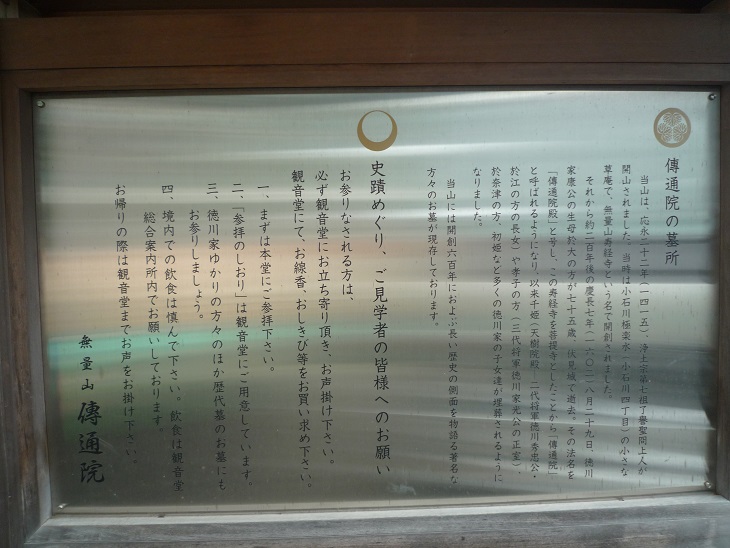 傳通院の墓所
当山は、応永二十二年(一四一五)浄土宗第七祖了譽聖冏上人が
開山されました。当時は小石川極楽水(小石川四丁目)の小さな
草庵で、無量山寿経寺という名で開創されました。
それから約二百年後の慶長七年(一六〇二)八月二十九日、徳川
家康公の生母於大の方が七十五歳、伏見城で逝去。その法名を
「傳通院殿」と号し、この寿経寺を菩提寺としたことから「傳通院」
と呼ばれるようになり、以来千姫(天樹院殿―二代将軍徳川秀忠公・
於江の方の長女)や孝子の方(三代将軍徳川家光公の正室)、
於奈津の方、初姫など多くの徳川家の子女達が埋葬されるように
なりました。
当山には開創六百年におよぶ長い歴史の側面を物語る著名な
方々のお墓が現存しております。
史蹟めぐり、ご見学者の皆様へのお願い
お参りなされる方は、
必ず観音堂にお立ち寄り頂き、お声掛け下さい。
観音堂にて、お線香、おしきび等をお買い求め下さい。
一、まずは本堂にご参拝下さい。
二、「参拝のしおり」は観音堂にご用意しています。
三、徳川家ゆかりの方々のほか歴代墓のお墓にも
お参りしましょう。
四、境内での飲食は慎んで下さい。飲食は観音堂
総合案内所内でお願いしております。
お帰りの際は観音堂までお声をお掛け下さい。
無量山 傳通院